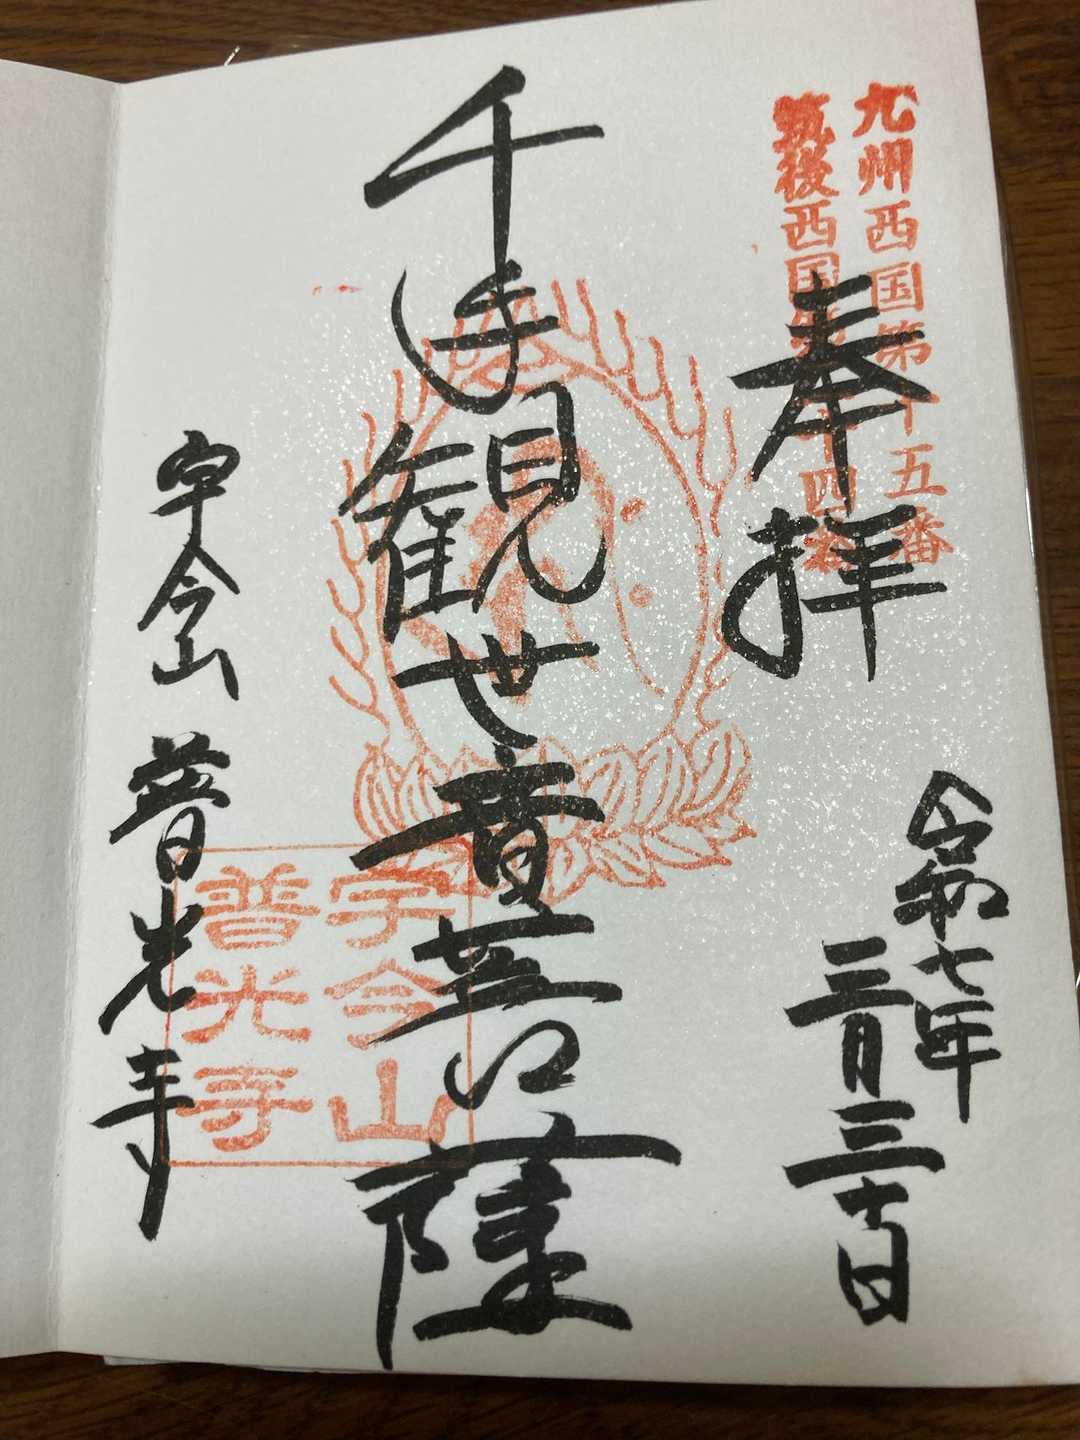 九州西国第十五番
筑後西国第十四番
奉拝
令和七年
三月三十日
千手観世音菩薩
宇今山
普光寺
宇今山 普光寺